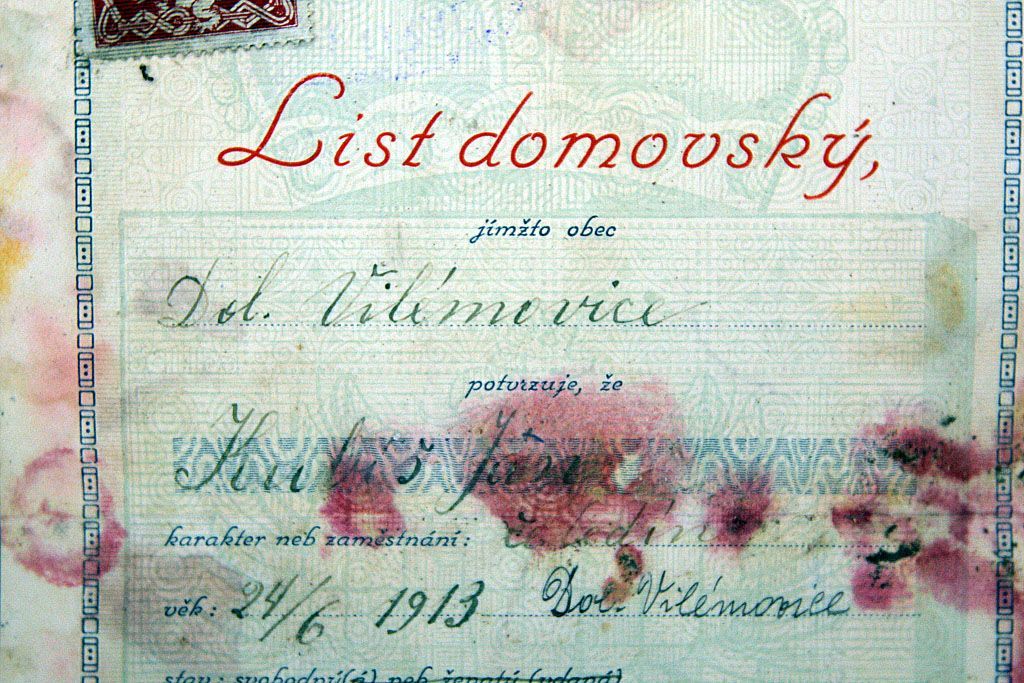 List domovský,
jímžto obec
Dol. Vilémovice
potvrzuje, že
Kubiš Jan
karakter neb zaměstnání: čeledín
věk: 24/6 1913 Dol. Vilémovice
stav: svobodný(á) neb ženatý (vdaná)